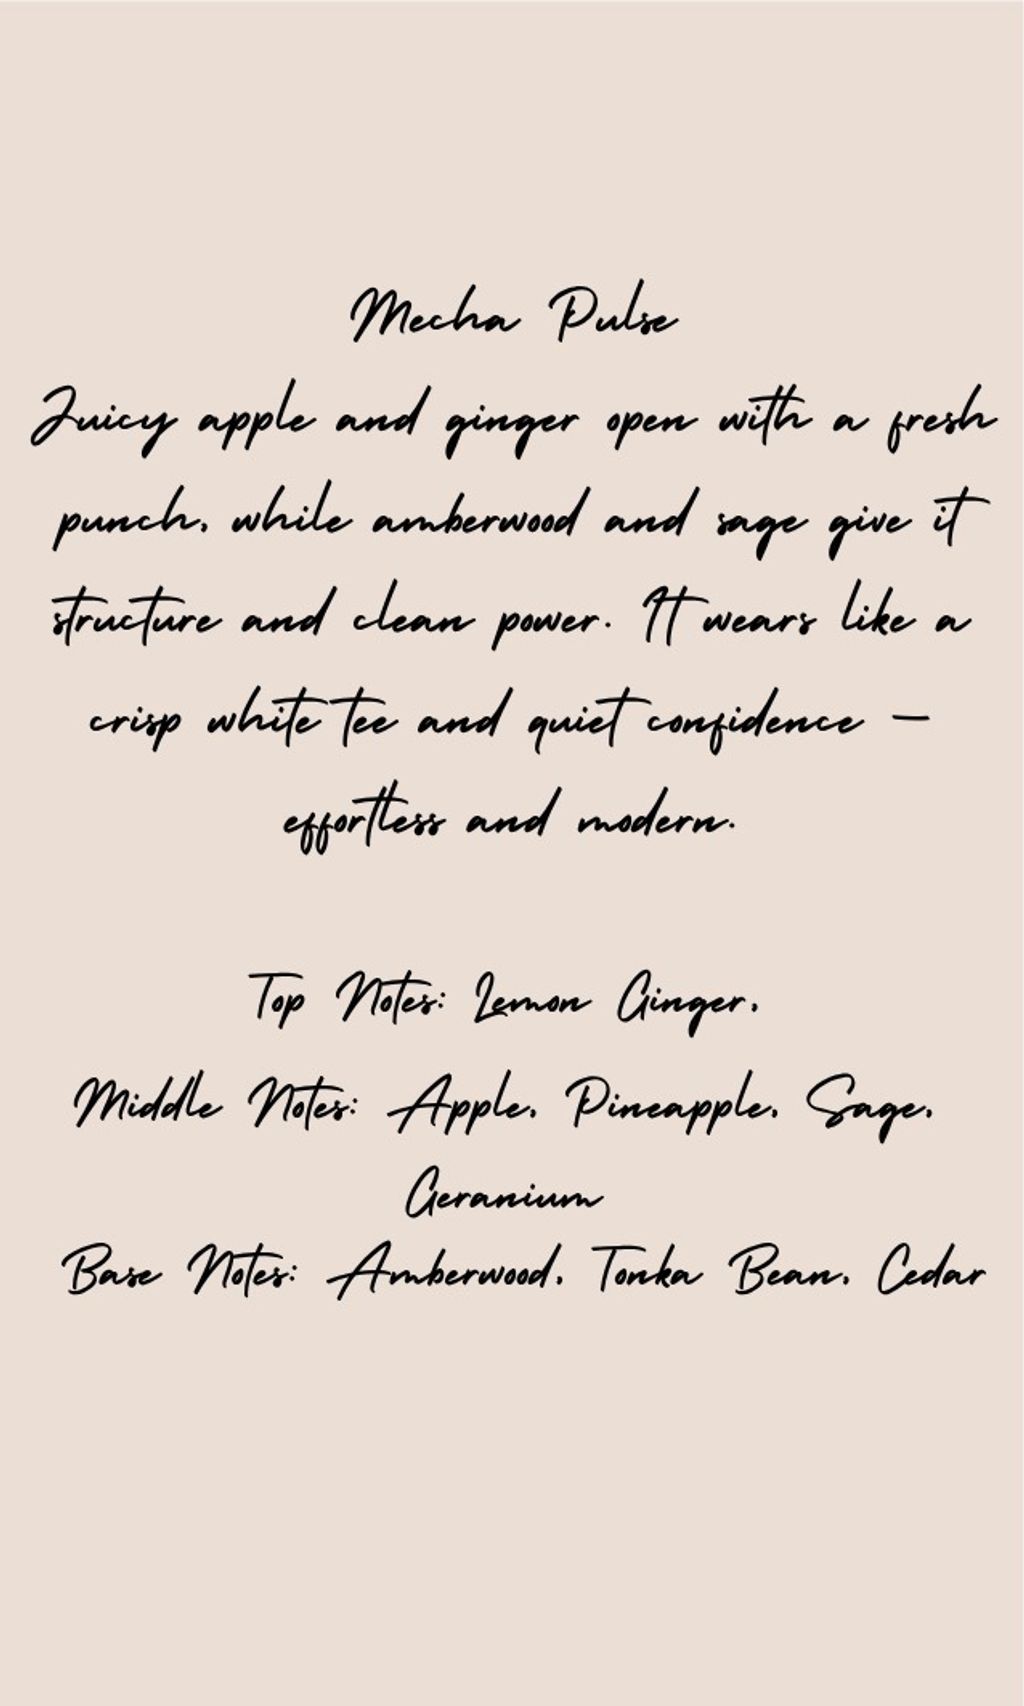 Mecha Pulse
Juicy apple and ginger open with a fresh
punch, while amberwood and sage give it
structure and clean power. It wears like a
crisp white tee and quiet confidence —
effortless and modern.
Top Notes: Lemon Ginger,
Middle Notes: Apple, Pineapple, Sage,
Geranium
Base Notes: Amberwood, Tonka Bean, Cedar